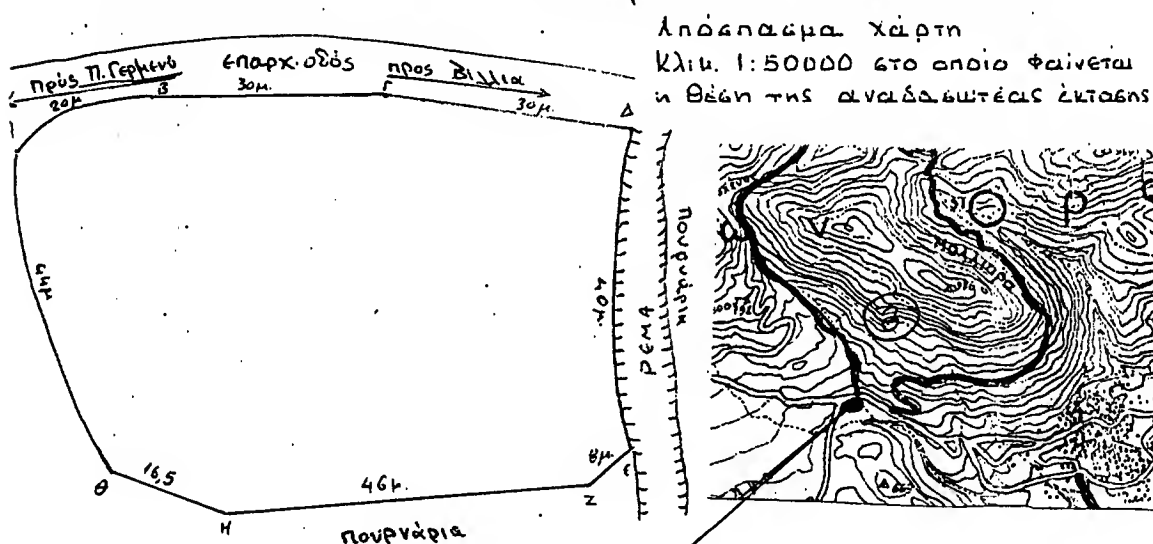 Απόσπασμα χάρτη
Κλιμ. 1:50000 στο οποίο φαίνεται
η θέση της αναδασωτέας έκτασης
προς Π. Γερμενό
επαρχ. οδός
προς Βίλλια
20μ
Β
30μ.
Γ
30μ.
Δ
44μ
40μ.
ΡΕΜΑ
Πουρνάρια
Θ
16,5
Η
46μ.
Ζ
8μ.
Ε
πουρνάρια
Ρ